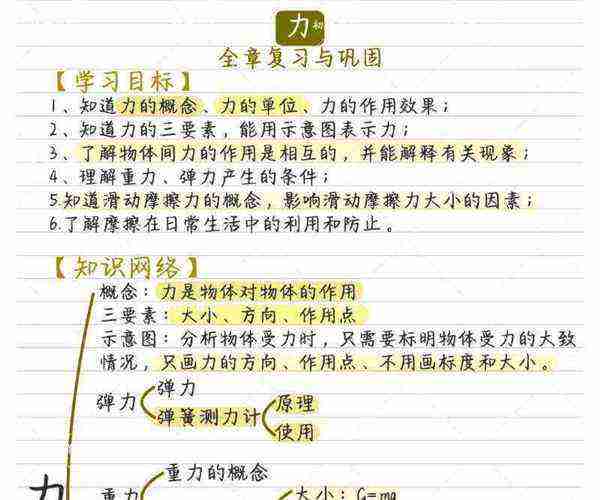 力 初
全章复习与巩固
【学习目标】
1、知道力的概念、力的单位、力的作用效果；
2、知道力的三要素，能用示意图表示力；
3、了解物体间力的作用是相互的，并能解释有关现象；
4、理解重力、弹力产生的条件；
5.知道滑动摩擦力的概念，影响滑动摩擦力大小的因素；
6.了解摩擦在日常生活中的利用和防止。
【知识网络】
概念：力是物体对物体的作用
三要素：大小、方向、作用点
示意图：分析物体受力时，只需要标明物体受力的大致
情况，只画力的方向、作用点、不用画标度和大小。
弹力
弹力
弹簧测力计
原理
使用
力
重力
重力的概念
大小：G=mg